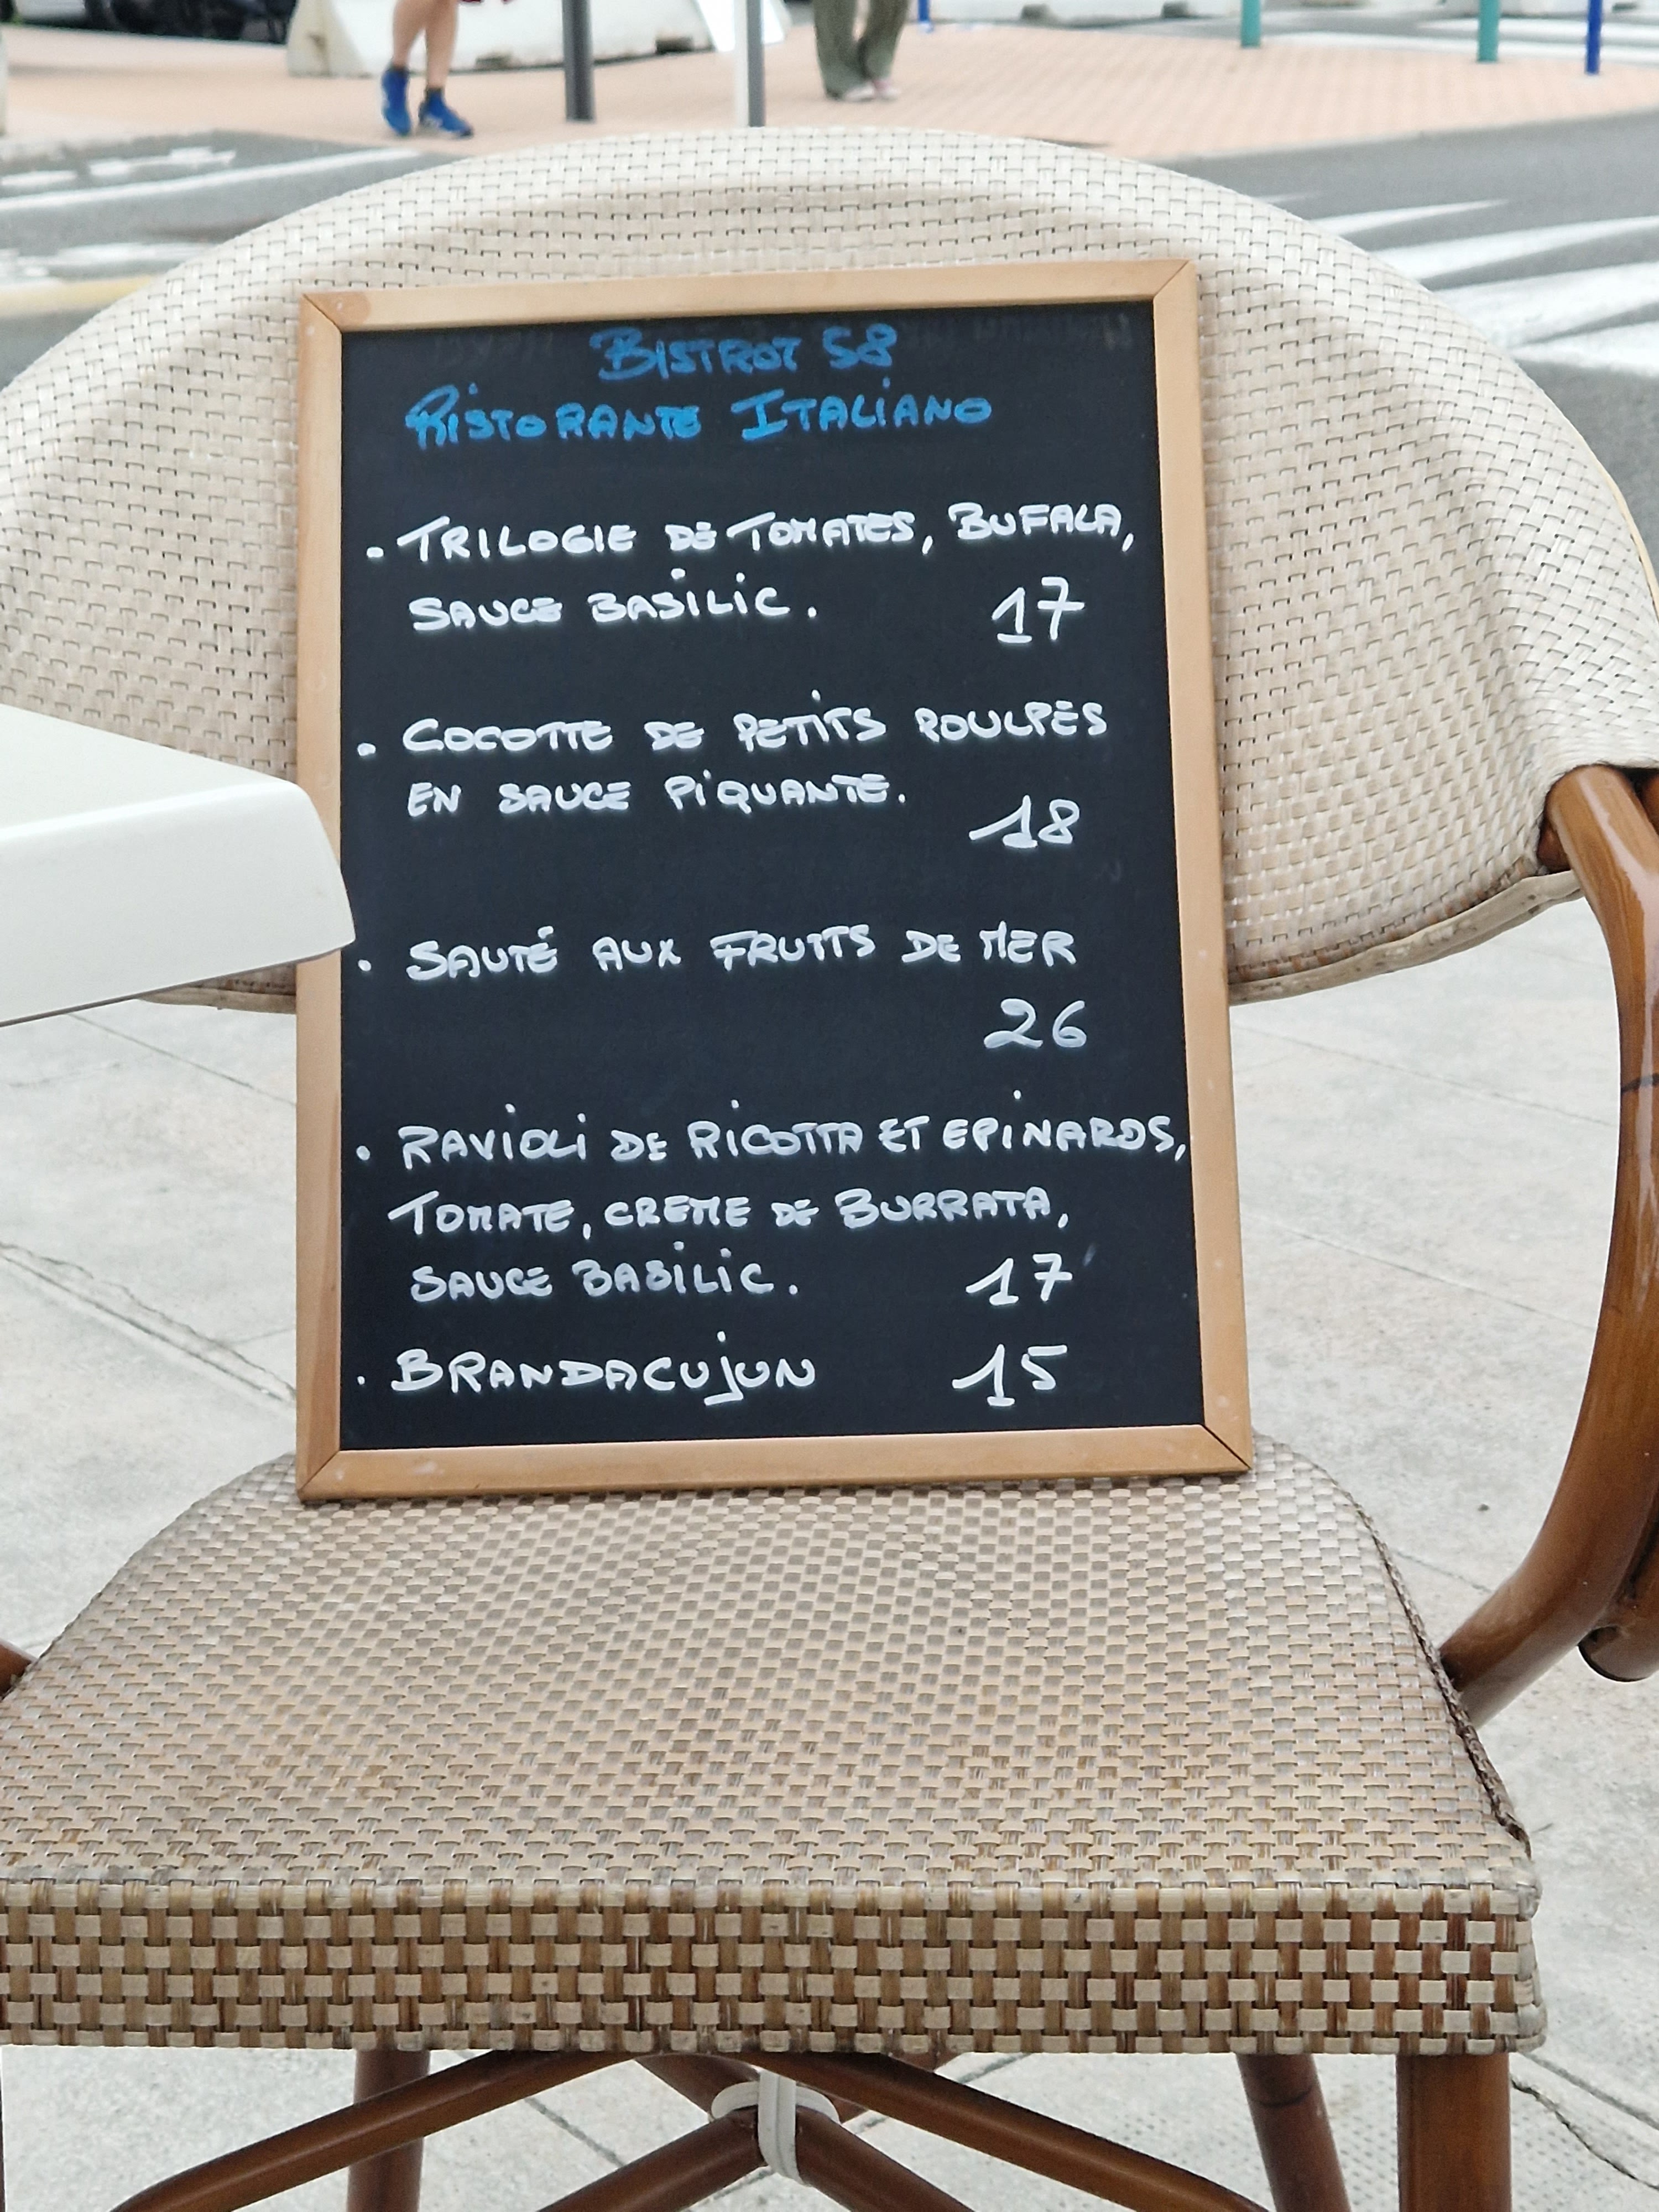 BISTROT 58
RISTORANTE ITALIANO
• TRILOGIE DE TOMATES, BUFALA,
SAUCE BASILIC. 17
• COCOTTE DE PETITS POULPES
EN SAUCE PIQUANTE.
18
• SAUTÉ AUX FRUITS DE MER
26
• RAVIOLI DE RICOTTA ET EPINARDS,
TOMATE, CREME DE BURRATA,
SAUCE BASILIC. 17
• BRANDACUJUN 15